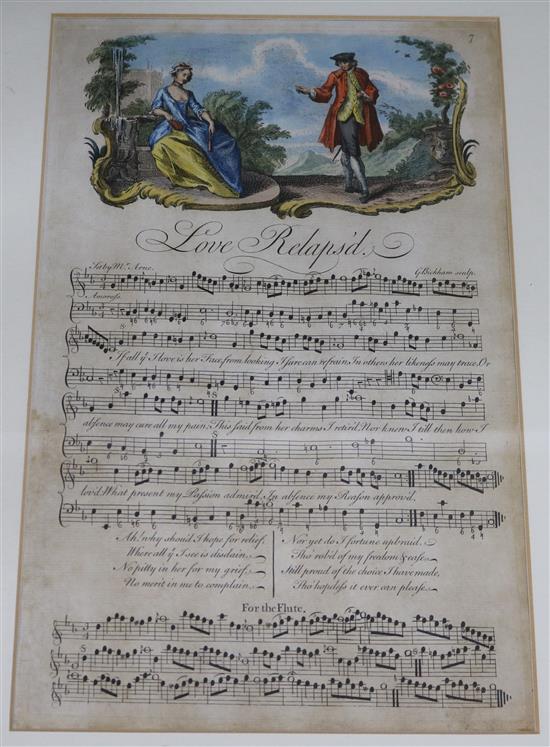 7
Love Relaps'd.
Set by Mr. Arne.
G. Bickham sculp.
Amoroso
If all ye I love is her Face, from looking I sure can refrain, In others her likeness may trace, Or
absence may cure all my pain; This said from her charms I retir'd Nor knew I till then how I
lov'd, What present my Passion admir'd, In absence my Reason approv'd.
Ah! why should I hope for relief,
Where all ye I see is disdain,
No pitty in her for my grief,
No merit in me to complain,
Nor yet do I fortune upbraid,
Tho' rob'd of my freedom & ease
Still proud of the choice I have made,
Tho' hopeless it ever can please.
For the Flute.